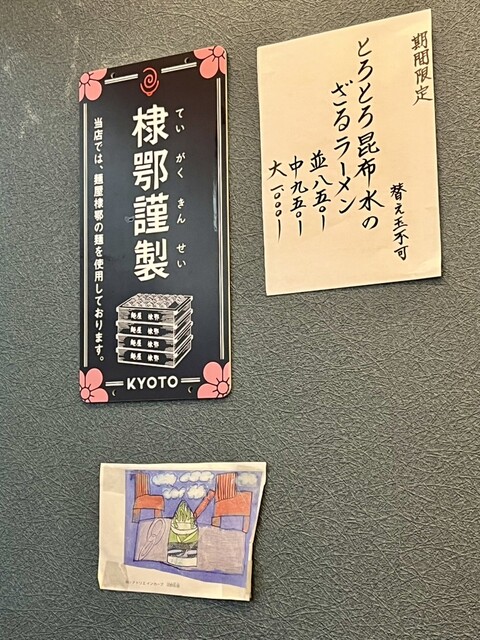 期間限定
とろとろ昆布水の
ざるラーメン
並八五〇ー
中九五〇ー
大一〇〇〇ー
替え玉不可
棣鄂謹製
てい がく きん せい
当店では、麺屋棣鄂の麺を使用しております。
麺屋 棣鄂
麺屋 棣鄂
麺屋 棣鄂
麺屋 棣鄂
KYOTO